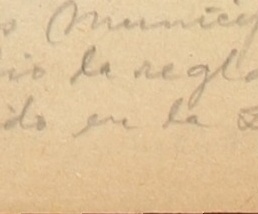 s Municip
io la regla
ido en la